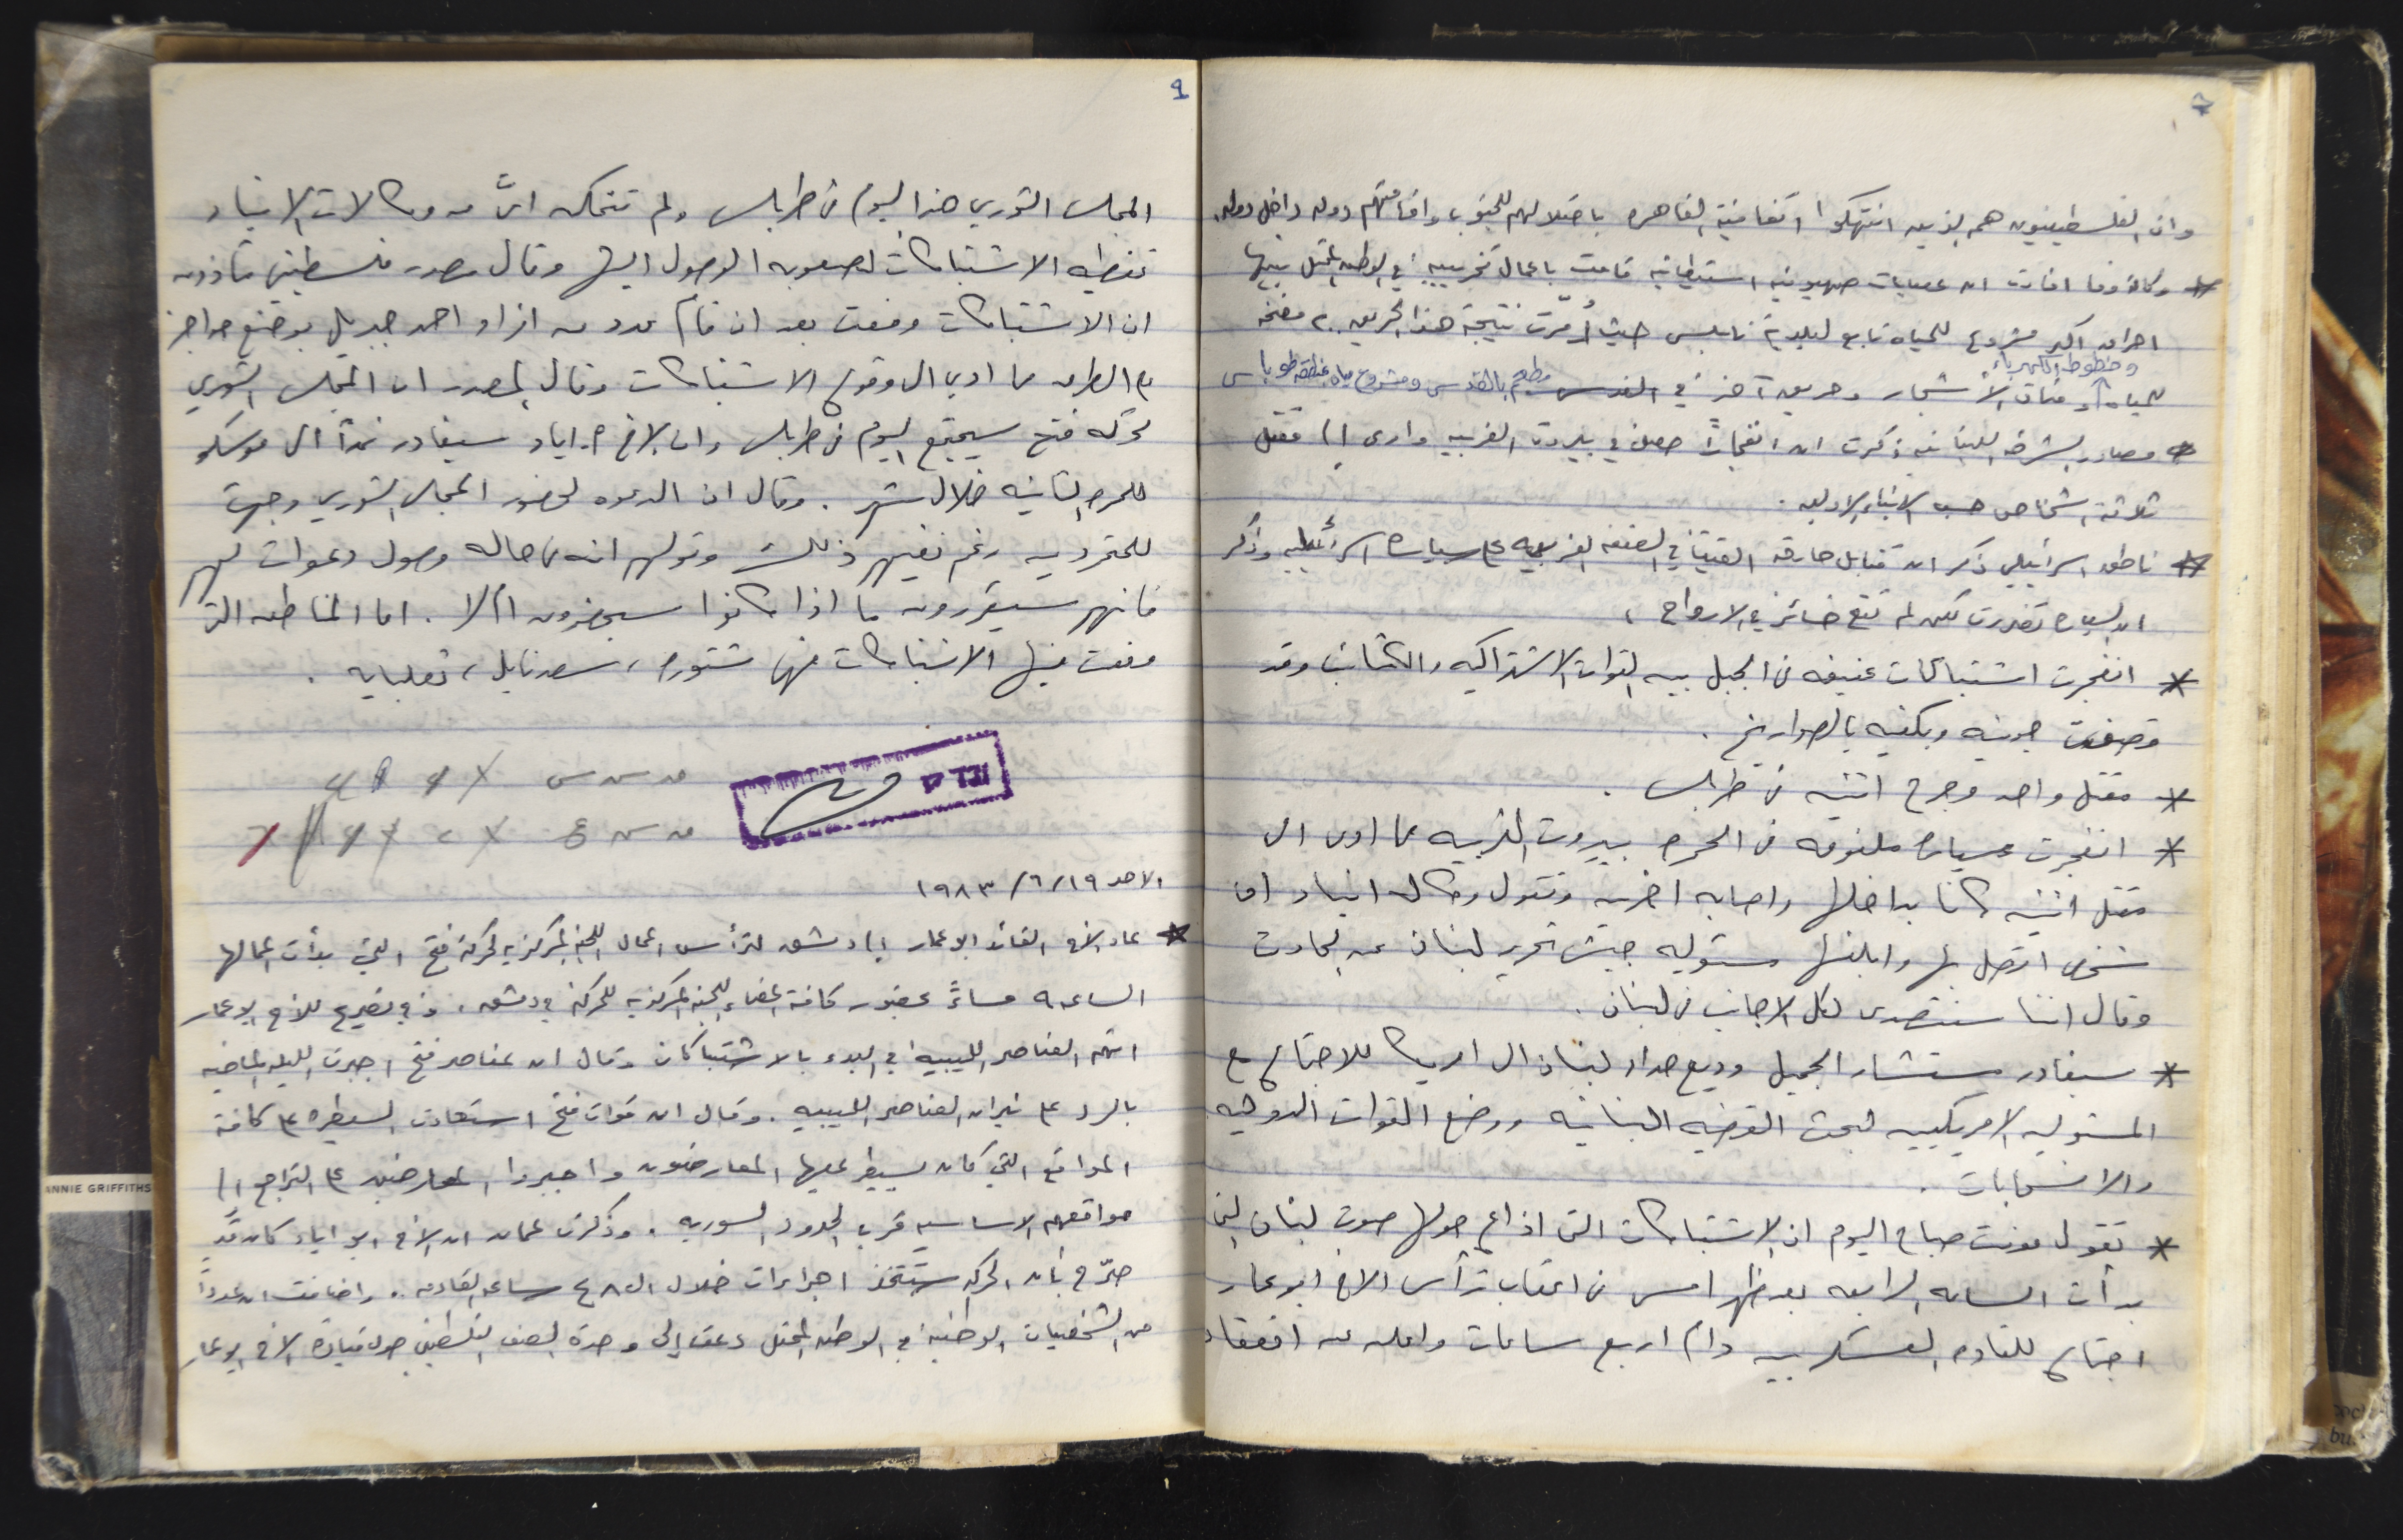 وان الفلسطينيون هم الذين انتهكوا اتفاقية القاهره باحتلالهم للجنوب واقامتهم دوله داخل دوله.
* وكالة وفا افادت ان عصابات صهيونيه استيطانيه قامت باعمال تخريبيه في الوطن المحتل بينها
احراق اكبر مشروع للمياه تابع لبلدية نابلس حيث دُمّرت نتيجة هذا الحريق ٢٠ مضخه
وخطوط الكهرباء
للمياه ومئات الأشجار وحريق آخر في مطعم بالقدس ومشروع مياه منطقة طوباس
* مصادر الشرطه اللبنانيه ذكرت ان انفجاراً حصل في بيروت الغربيه وادى إلى مقتل
ثلاثة اشخاص حسب الانباء الاوليه.
* ناطق اسرائيلي ذكر ان قنابل حارقه القيت في الضفه الغربيه على سياره اسرائيليه وذكر
ان السياره تضررت لكن لم تقع خسائر في الارواح،
* انفجرت اشتباكات عنيفه في الجبل بين القوات الاشتراكيه والكتائب وقد
قصفت جونيه وبكفيه بالصواريخ.
* مقتل واحد وجرح اثنين في طرابلس.
* انفجرت سياره ملغومه في الحمره بيروت الغربيه مما ادى الى
مقتل اثنين كانا بداخلها واصابه اخرين وتقول وكاله انباء ان
شخص اتصل بها وابلغها مسئوليه جيش تحرير لبنان عن الحادث
وقال اننا سنتصدى لكل الاجانب في لبنان.
* سيغادر مستشار الجميل وديع حداد لبنان الى امريكا للاجتماع مع
المسئولين الامريكيين لبحث القضيه اللبنانيه ووضع القوات الدوليه
والانسحابات.
* تقول مونت صباح اليوم ان الاشتباكات التي اذاع حولها صوت لبنان التي
بدأت الساعه الرابعه بعد ظهر امس في اعقاب ترأس الاخ ابو عمار
اجتماع للقاده العسكريين دام اربع ساعات واعلن عن انعقاد
٩
المجلس الثوري هذا اليوم في طرابلس ولم تتمكن ايٌ من وكالات الانباء
تغطيه الاشتباكات لصعوبه الوصول اليها وقال مصدر فلسطيني مأذون
ان الاشتباكات وقعت بعد ان قام عدد من افراد احمد جبريل بوضع حواجز
على الطرق مما ادى الى وقوع الاشتباكات وقال المصدر ان المجلس الثوري
لحركه فتح سيجتمع اليوم في طرابلس وان الاخ ا. اياد سيغادر غداً الى موسكو
للمره الثانيه خلال شهر. وقال ان الدعوه لحضور المجلس الثوري وجهت
للمتمردين رغم نفيهم ذلك وقولهم انه في حاله وصول دعوات لهم
فانهم سيقررون ما اذا كانوا سيحضرون ام لا. اما المناطق التي
وقعت فيها الاشتباكات فهي شتوره، سعدنايل، ثعلبايه.
الاحد ١٩/٦/١٩٨٣
* عاد الاخ القائد ابو عمار إلى دمشق لترأس اعمال اللجنه المركزيه لحركة فتح التي بدأت اعمالها
الساعه ٩ مساءً بحضور كافة اعضاء اللجنه المركزيه للحركة في دمشق. وفي تصريح للاخ ابو عمار
اتهم العناصر الليبيه في البدء بالاشتباكات وقال ان عناصر فتح اجبرت الليله الماضيه
بالرد على نيران العناصر الليبيه. وقال ان قوات فتح استعادت السيطره على كافة
المواقع التي كان يسيطر عليها المعارضون واجبروا المعارضين على التراجع إلى
مواقعهم الاساسيه قرب الحدود السوريه. وذكرت عمان ان الاخ ابو اياد كان قد
صرّح بأن الحركه ستتخذ اجراءات خلال ال ٤٨ ساعه القادمه. واضافت ان عدداً
من الشخصيات الوطنية في الوطن المحتل دعت إلى وحدة الصف الفلسطيني حول قيادة الاخ ابو عمار
ANNIE GRIFFITHS